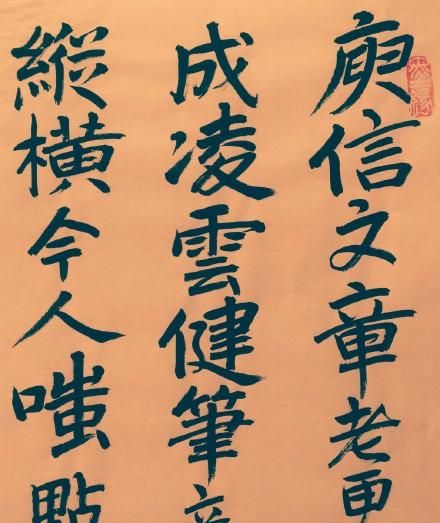 庾信文章老更
成凌雲健筆
縱橫今人嗤點